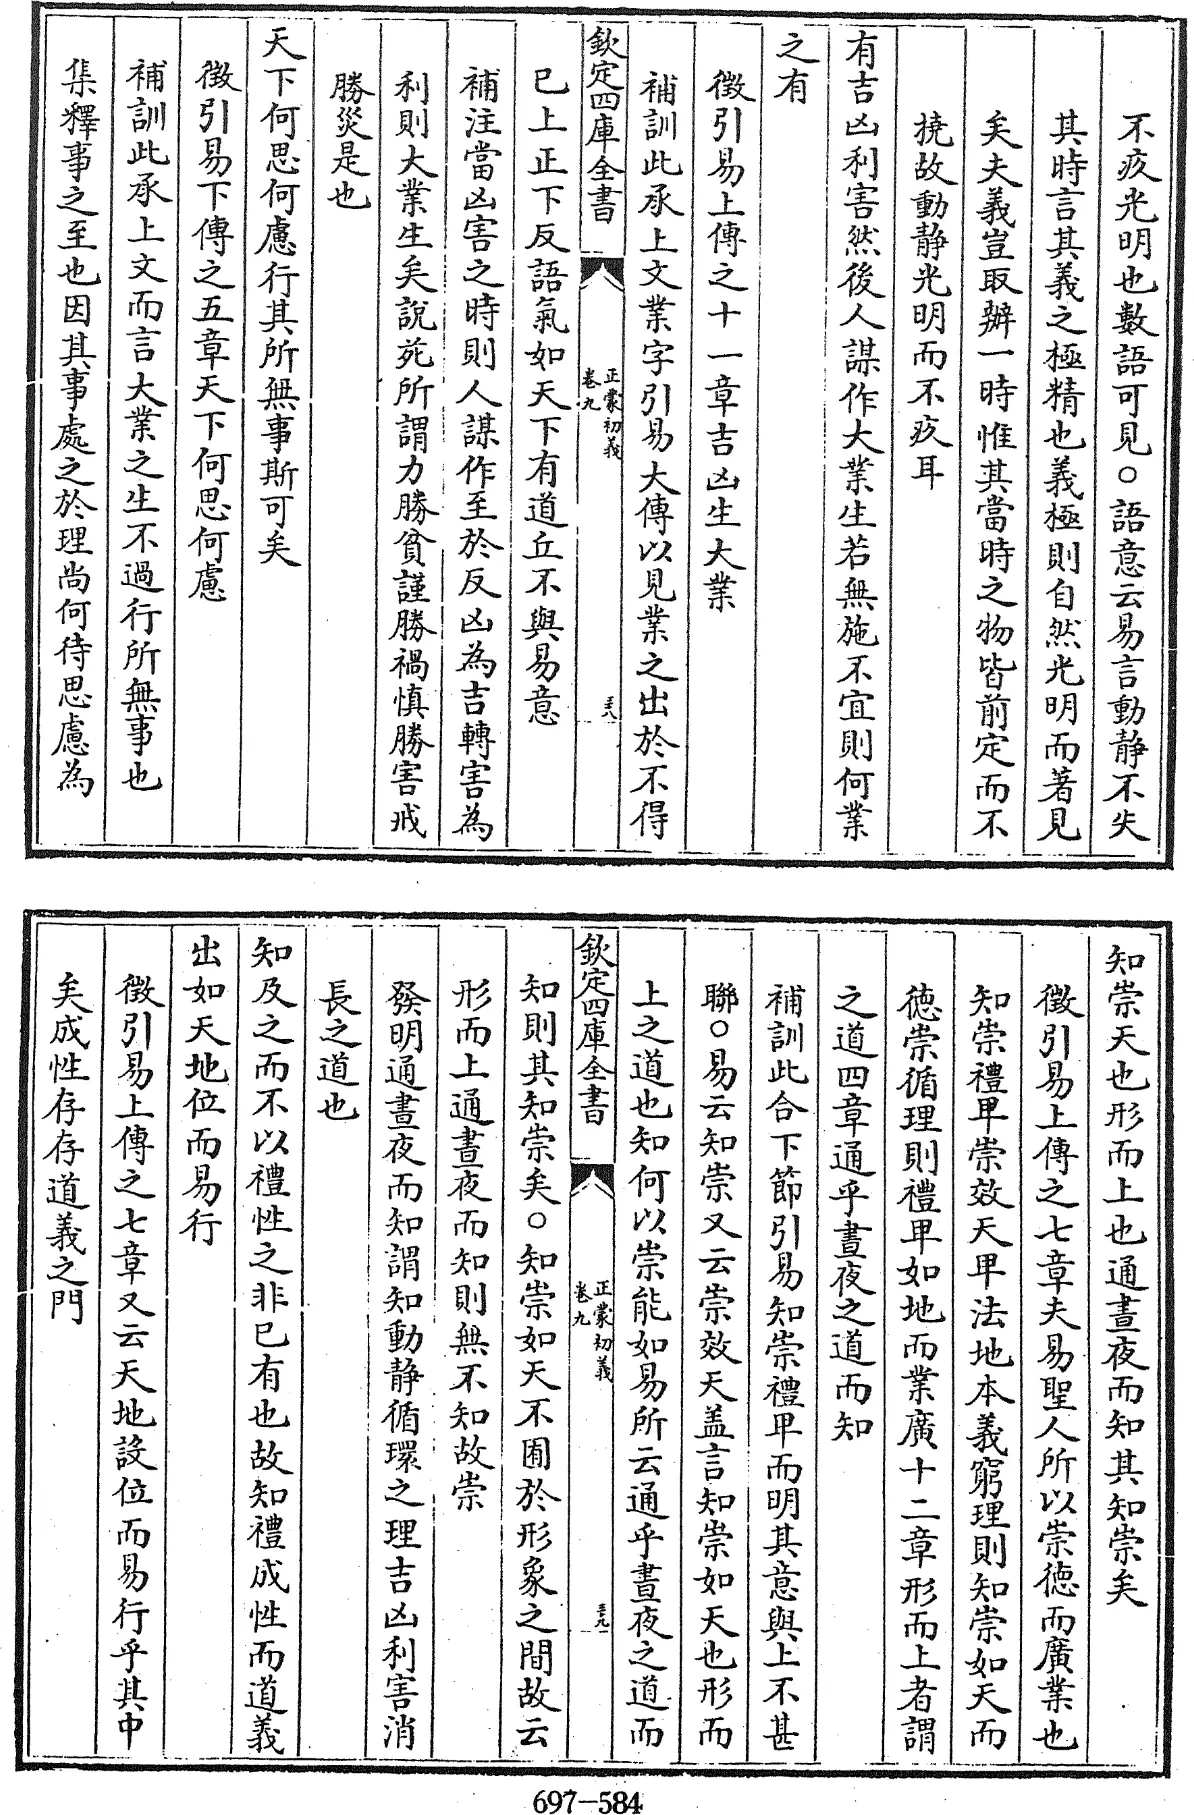 不疚光明也數語可見○語意云易言動靜不失
其時言其義之極精也義極則自然光明而著見
矣夫義豈取辦一時惟其當時之物皆前定而不
撓故動靜光明而不疚耳
有吉凶利害然後人謀作大業生若無施不宜則何業
之有
徵引易上傳之十一章吉凶生大業
補訓此承上文業字引易大傳以見業之出於不得
欽定四庫全書
正蒙初義
卷九
三十八
已上正下反語氣如天下有道丘不與易意
補注當凶害之時則人謀作至於反凶為吉轉害為
利則大業生矣說苑所謂力勝貧謹勝禍慎勝害戒
勝災是也
天下何思何慮行其所無事斯可矣
徵引易下傳之五章天下何思何慮
補訓此承上文而言大業之生不過行所無事也
集釋事之至也因其事處之於理尚何待思慮為
知崇天也形而上也通晝夜而知其知崇矣
徵引易上傳之七章夫易聖人所以崇德而廣業也
知崇禮卑崇效天卑法地本義窮理則知崇如天而
德崇循理則禮卑如地而業廣十二章形而上者謂
之道四章通乎晝夜之道而知
補訓此合下節引易知崇禮卑而明其意與上不甚
聯○易云知崇又云崇效天盖言知崇如天也形而
上之道也知何以崇能如易所云通乎晝夜之道而
欽定四庫全書
正蒙初義
卷九
三十九
知則其知崇矣○知崇如天不囿於形象之間故云
形而上通晝夜而知則無不知故崇
發明通晝夜而知謂知動靜循環之理吉凶利害消
長之道也
知及之而不以禮性之非已有也故知禮成性而道義
出如天地位而易行
徵引易上傳之七章又云天地設位而易行乎其中
矣成性存存道義之門
697-584